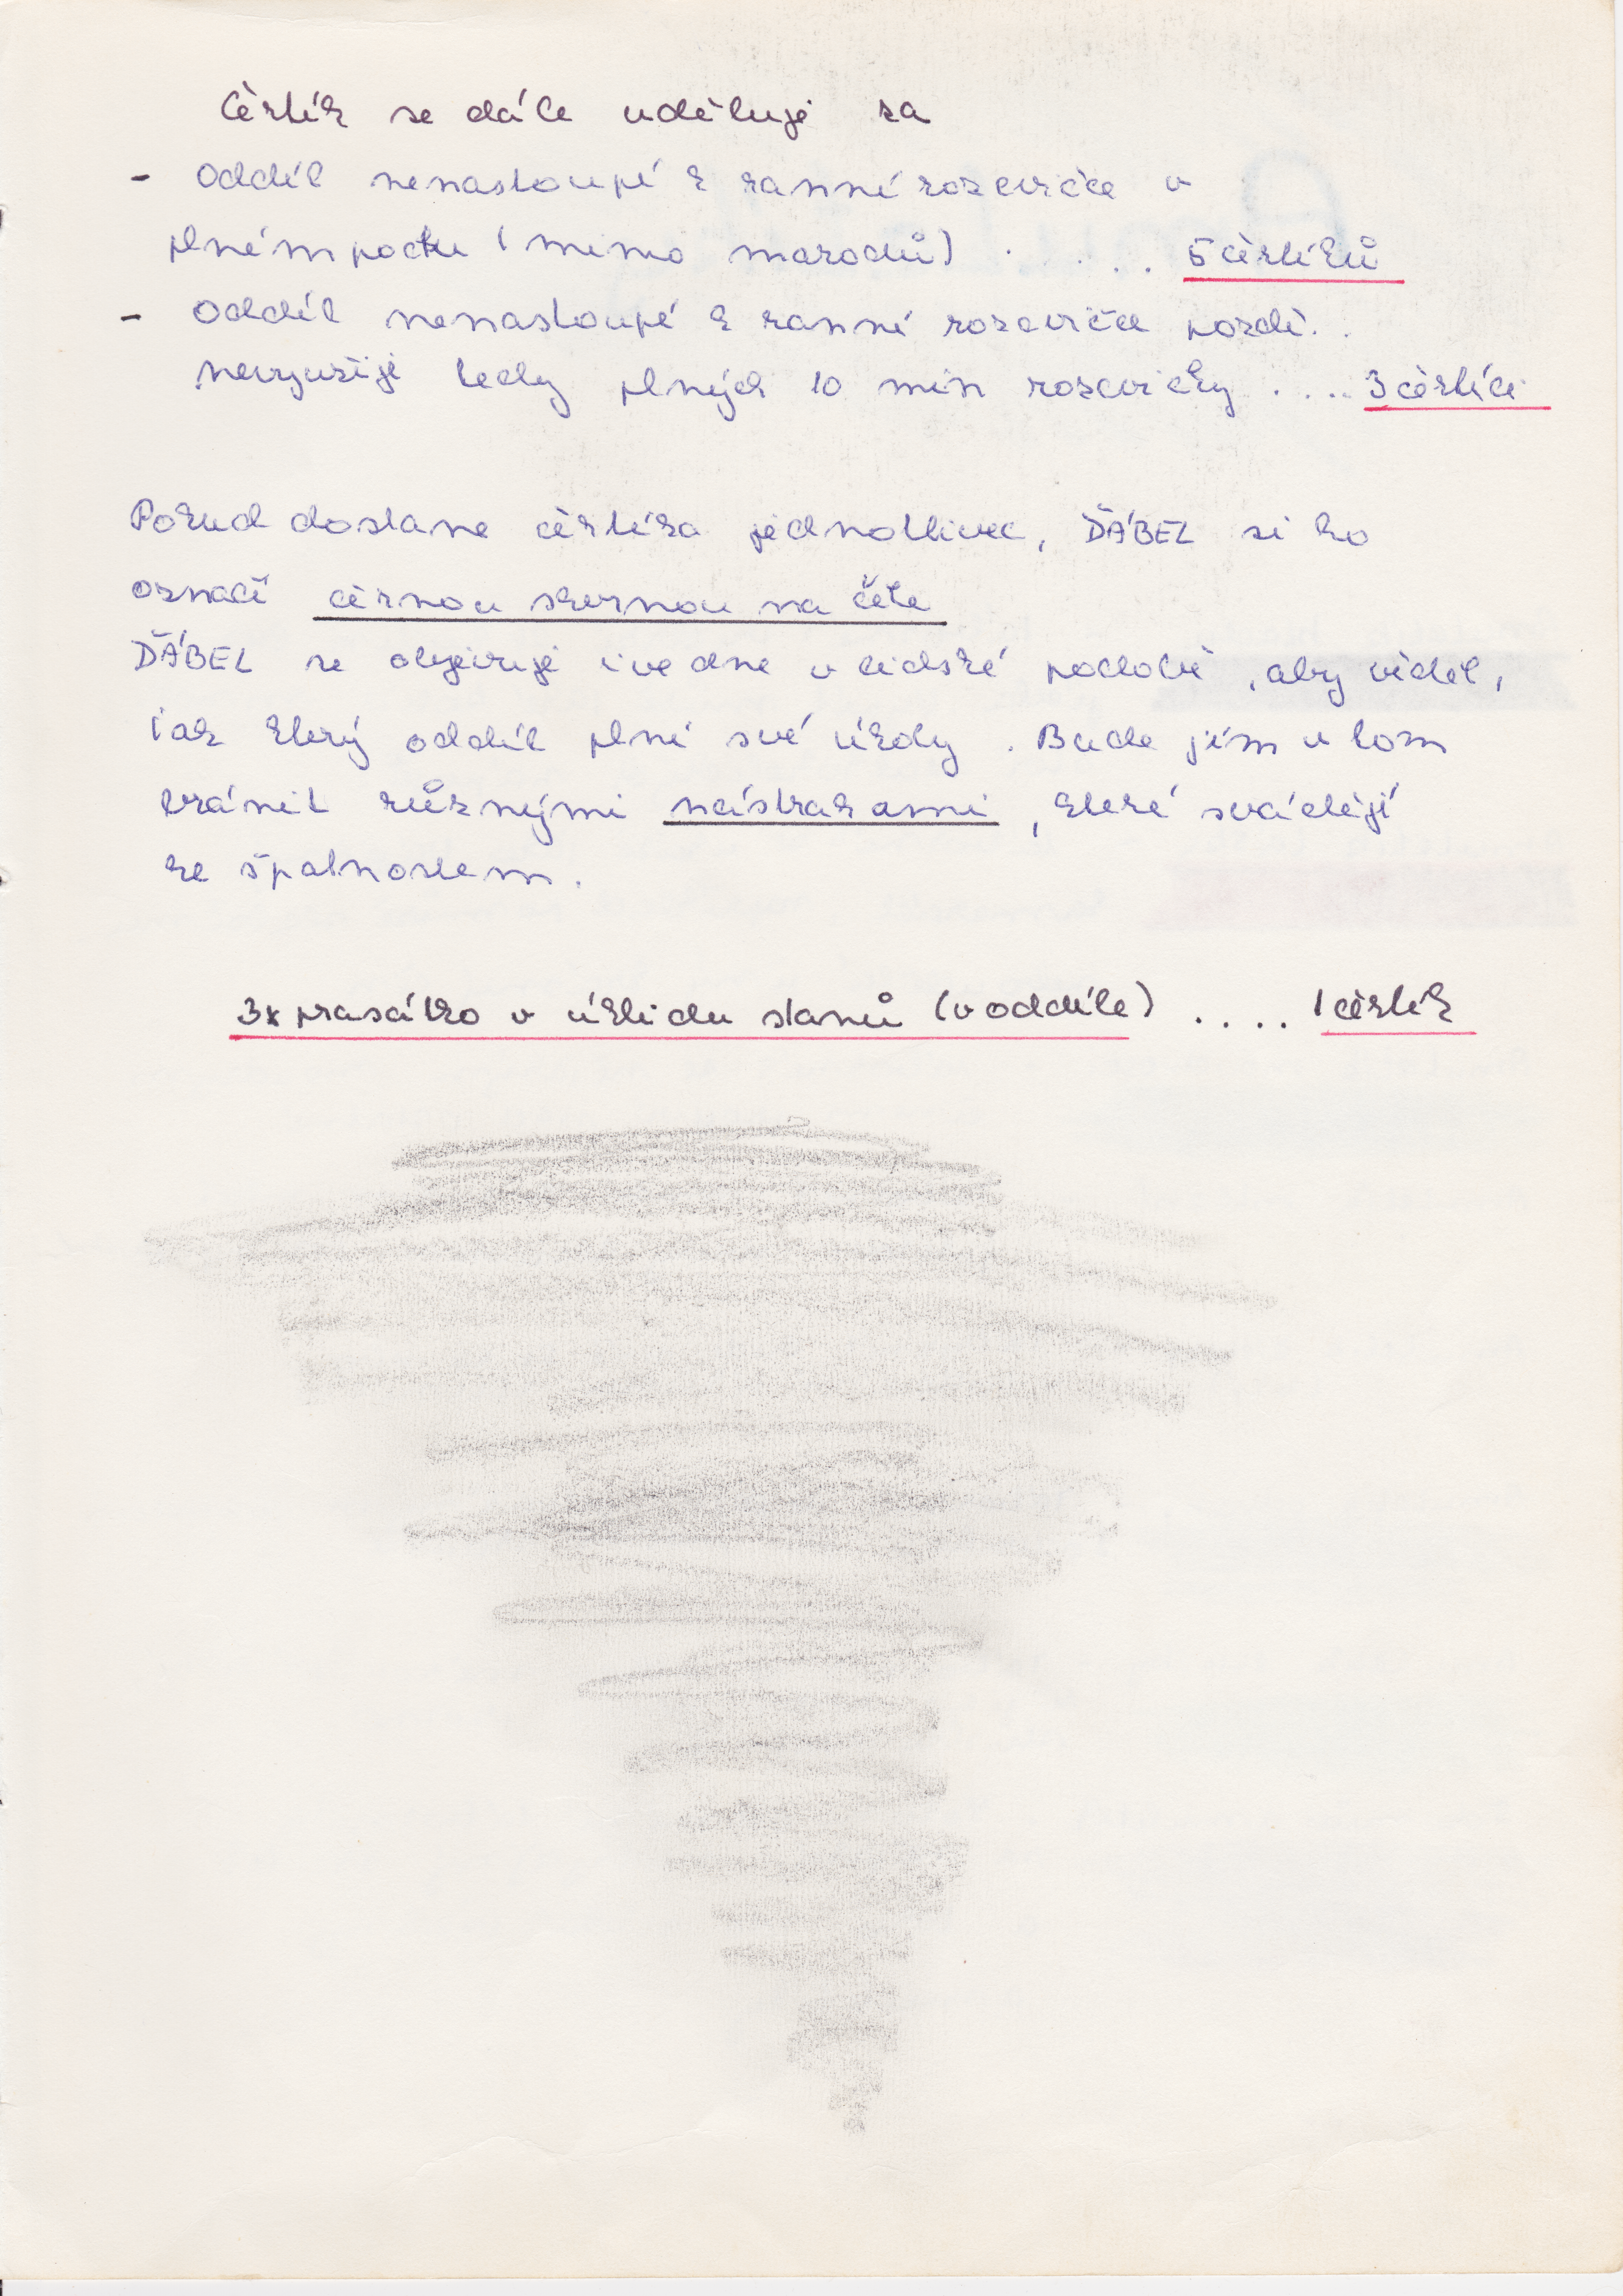 čertík se dále uděluje za
- Oddíl nenastoupí k ranní rozcvičce v
plném počtu (mimo marodů) . . . . . 5 čertíků
- Oddíl nenastoupí k ranní rozcvičce pozdě. .
nevyužije tedy plných 10 min rozcvičky . . . . 3 čertíci
Pokud dostane čertíka jednotlivec, ĎÁBEL si ho
označí černou skvrnou na čele
ĎÁBEL se objevuje i ve dne v lidské podobě, aby viděl,
jak který oddíl plní své úkoly. Bude jim v tom
bránit různými nástrahami, které svádějí
ke špatnostem.
3x prasátko v úklidu stanů (v oddíle) . . . . 1 čertík